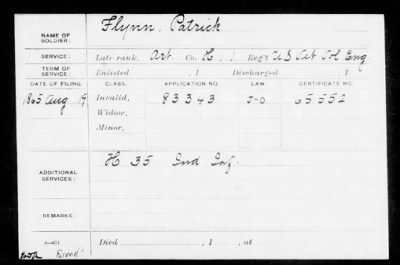 NAME OF SOLDIER: Flynn, Patrick
SERVICE: Late rank, Art. Co. H, 1 Reg't U.S. Vet Vol Eng
TERM OF SERVICE: Enlisted , 1 Discharged , 1
DATE OF FILING. CLASS. APPLICATION NO. LAW. CERTIFICATE NO.
1865 Aug 19 Invalid, 83343 J-O 65552
Widow,
Minor,
ADDITIONAL SERVICES: H 35 Ind Inf.
REMARKS:
Died , 1 , at